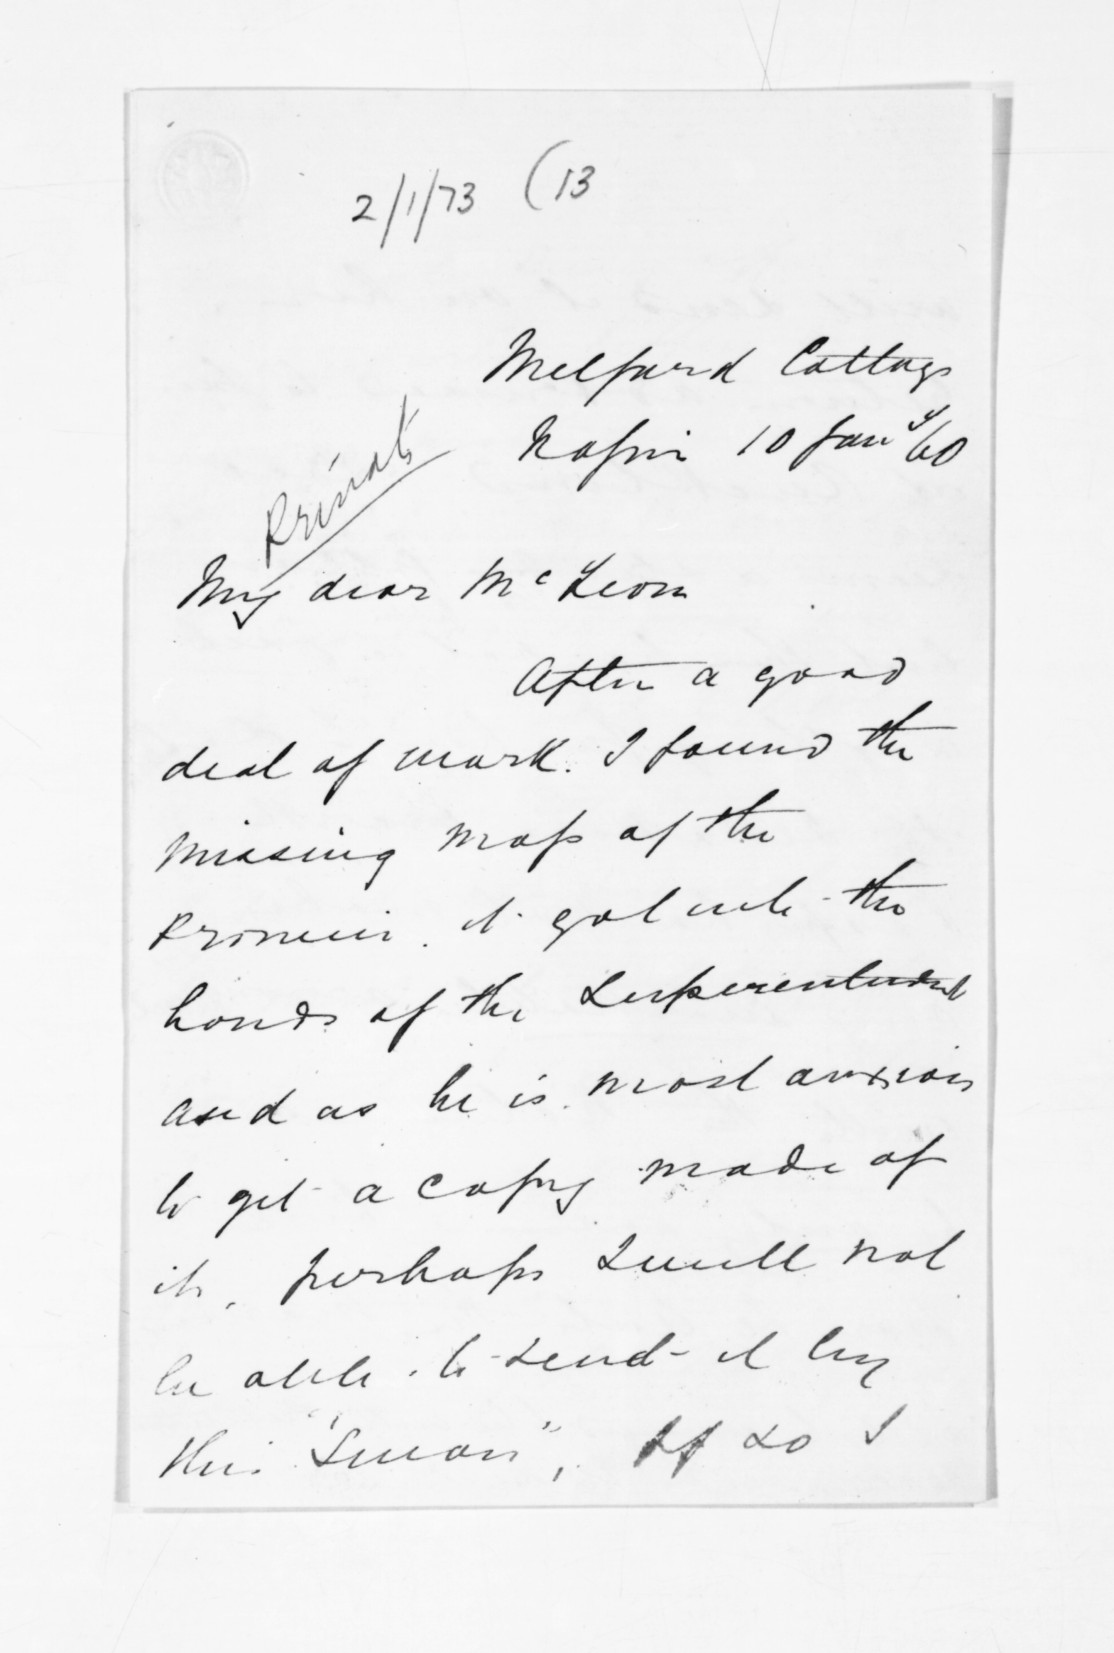 2/1/73 (13
Melford Cottage
Napier 10 Jany /60
Private
My dear McLean
After a good
deal of work. I found the
missing map of the
Province. it got into the
hands of the Superintendent
and as he is most anxious
to get a copy made of
it, perhaps I will not
be able to send it by
this "Swan", If so I